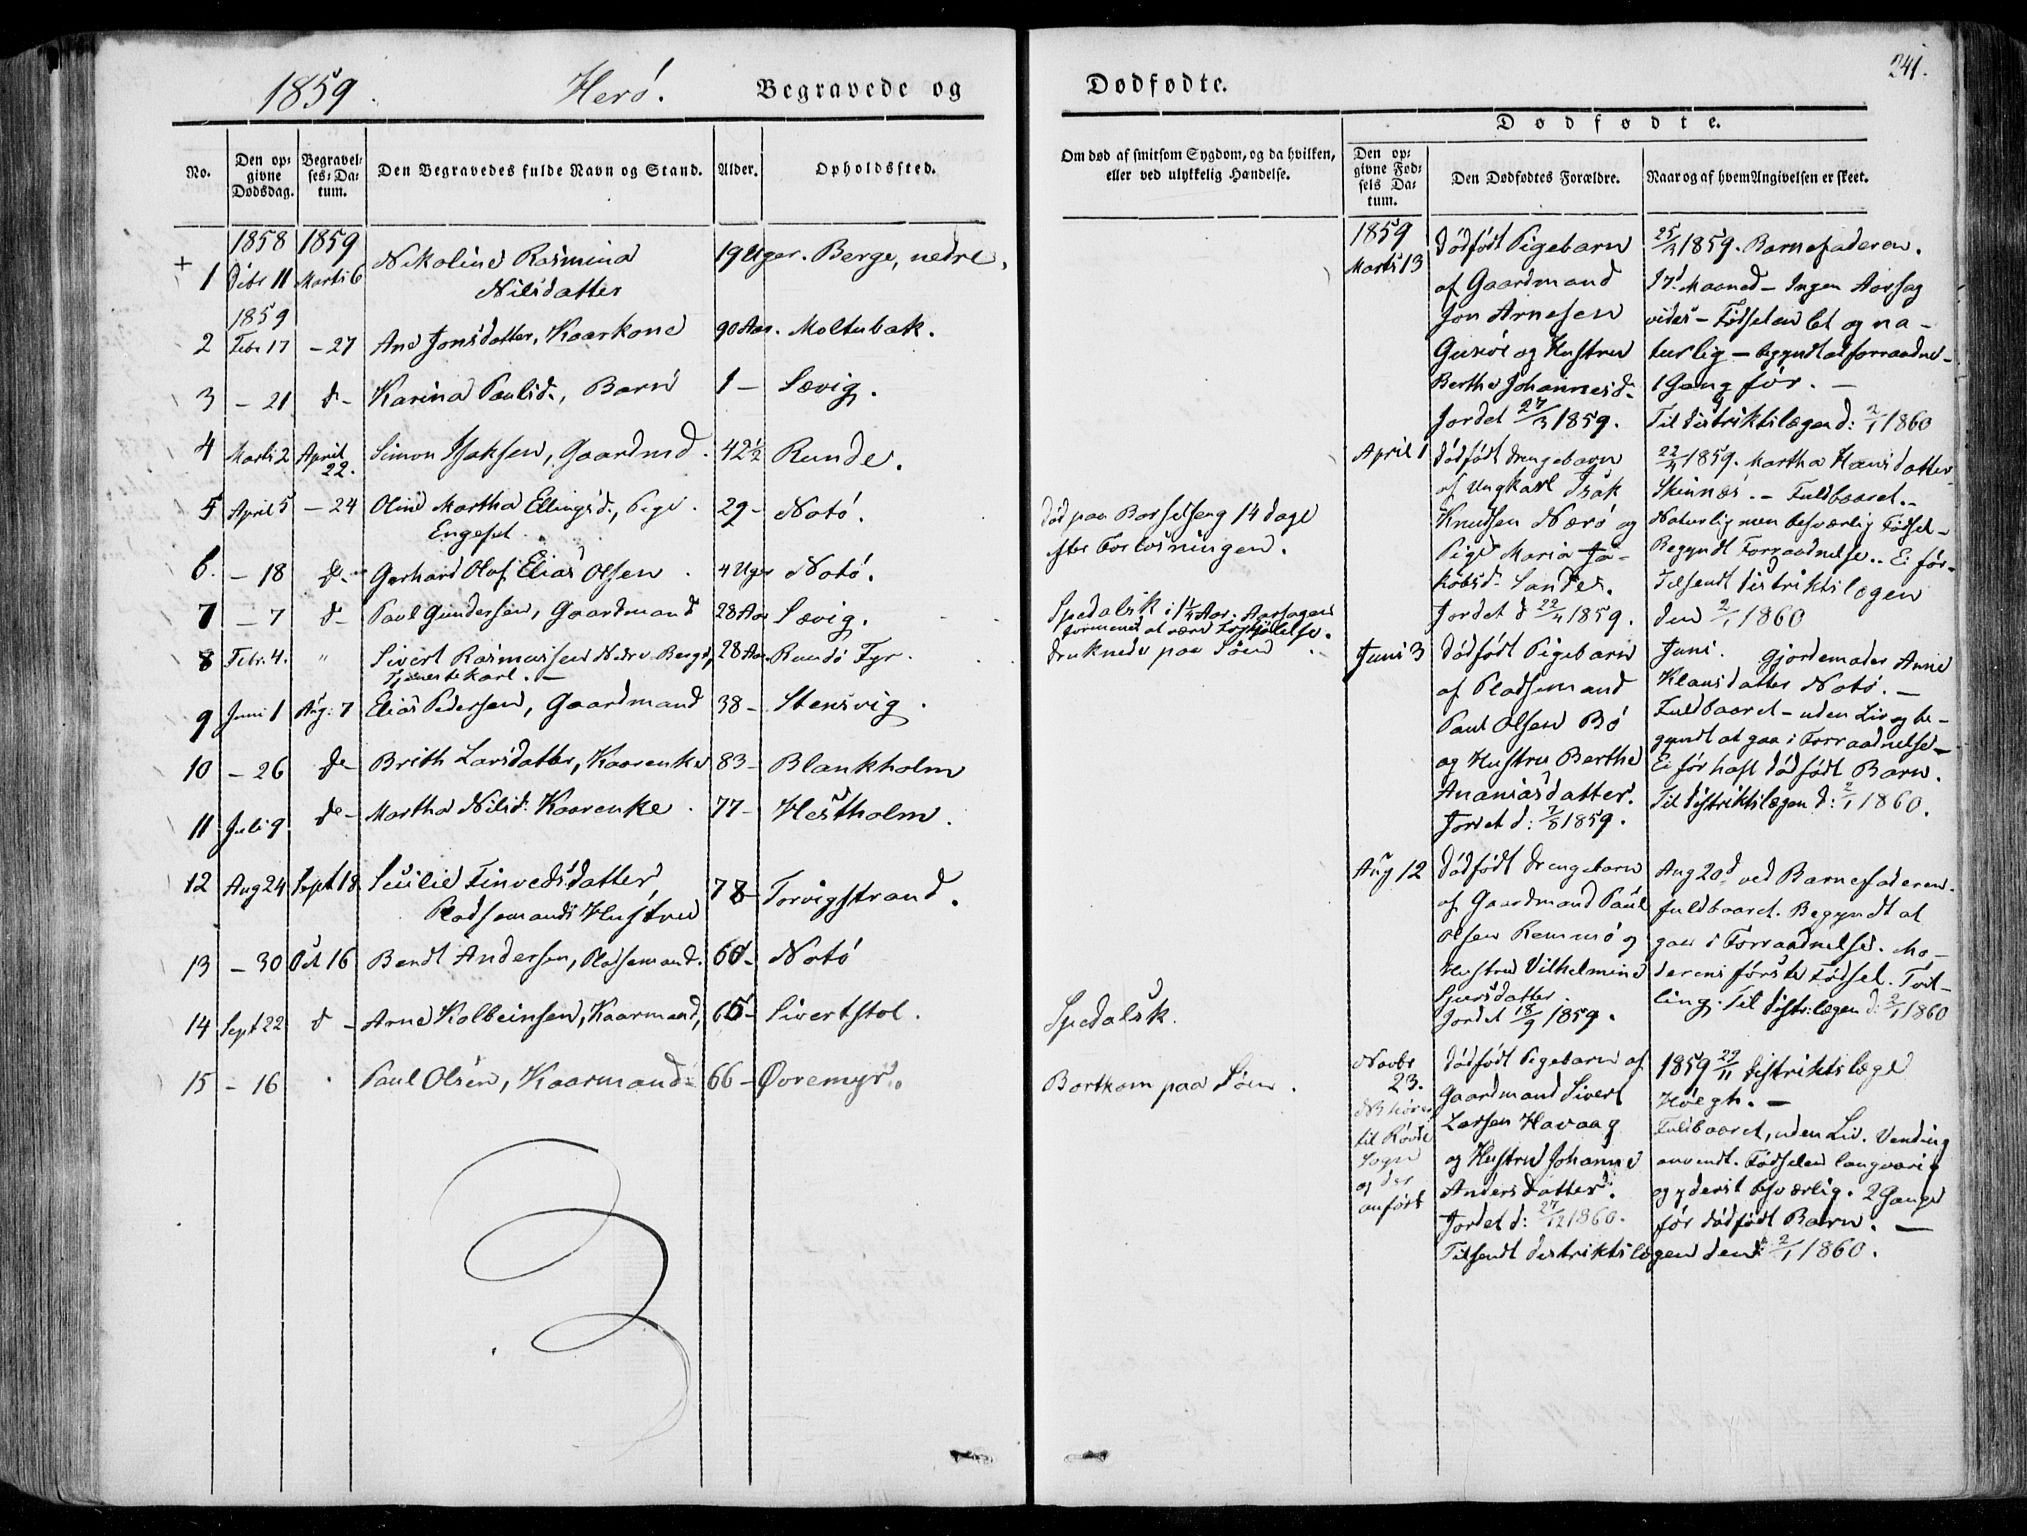 241.
1859. Herö. Begravede og Dødfødte.
No. Den opgivne Dødsdag. Begravelses-Datum. Den Begravedes fulde Navn og Stand. Alder. Opholdssted.
1858 1859
1 Decbr 11 Marts 6 Nikoline Rasmina 19 Uger. Berge, nedre.
Nilsdatter
1859
2 Febr 17 – 27 Ane Jonsdatter, Kaarkone 90 Aar. Moltubak.
3 – 21 do Karina Paulsd., Barn 1 – Sævig.
4 Marts 2 April 22. Simon Isaksen, Gaardmd. 42½ Runde.
5 April 5 – 24 Oline Martha Ellingsd., Pige. 29 – Notö.
Engeset
6. – 18 do Gerhard Olaf Elias Olsen 4 Uger Notö.
7 – 7 do Paul Gundersen, Gaardmand 28 Aar Sævig.
8 Febr. 4. " Sivert Rasmussen Nedre Berge, 28 Aar. Rundö Fyr.
Tjenestekarl. –
9 Juni 1 Aug: 7 Elias Pedersen, Gaardmand 38 – Stensvig.
10 – 26 do Brith Larsdatter, Kaarenke 83 – Blankholm
11 Juli 9 do Martha Nilsd: Kaarenke. 77 – Hestholm.
12 Aug 24 Sept 18 Secilie Finvedsdatter, 78 – Torvigstrand.
Pladsemands Hustru
13 – 30 Oct 16 Bendt Andersen, Pladsemand. 60 – Notö
14 Sept 22 do Arne Kolbeinsen, Kaarmand, 65 – Sivertstol.
15 – 16 " Paul Olsen, Kaarmand 66 – Øvremyr.
Om død af smitsom Sygdom, og da hvilken,
eller ved ulykkelig Hændelse.
Död paa Barselseng 14 dage
efter Forlösningen.
Spedalsk i 1¼ Aar. Aarsagen
formenes at være Forkjölelse.
druknede paa Söen
Spedalsk.
Bortkom paa Söen.
Dødfødte.
Den opgivne Fødsels Datum. Den Dødfødtes Forældre. Naar og af hvem Angivelsen er skeet.
1859
Marts 13
Dödfödt Pigebarn
af Gaardmand
Jon Arnesen
Gurköe og Hustru
Berthe Johannesd.
Jordet 27/3 1859.
25/3 1859. Barnefaderen.
7d Maaned – Ingen Aarsag
vides – Födselen let og na-
turlig – begyndt at forraadne –
1 Gang för. –
Til Distriktslægen d: 2/1 1860
April 1
Dödfödt Drengebarn
af Ungkarl Isak
Knudsen Nærö og
Pige Maria Ja-
kobsd. Sandes.
Jordet d 22/4 1859.
22/4 1859. Martha Hansdatter
Skinnes. – Fuldbaaret. –
Naturlig men besværlig Födsel –
Begyndt Forraadnelse.. Ei för.
Tilsendt Distriktslægen
den 2/1 1860
Juni 3
Dödfödt Pigebarn
af Pladsemand
Paul Olsen Bö
og Hustru Berthe
Ananiasdatter.
Jordet d: 7/8 1859.
Juni. Gjordemoder Anne
Klausdatter Notö. –
Fuldbaaret – uden Liv og be-
gyndt at gaa i Forraadnelse –
Ei för haft Dödfödt Barn.
Til Distriktslægen d: 2/1 1860.
Aug 12
Dödfödt Drengebarn
af Gaardmand Paul
Olsen Remmö og
Hustru Vilhelmine
Sjursdatter.
Jordet 18/9 1859.
Aug 20d ved Barnefaderen.
fuldbaaret. Begyndt at
gaa i Forraadnelse. Mo-
derens förste Födsel. Tvil-
ling. Til Distr:lægen d: 2/1 1860
Novbr 23.
NB hörer
til Rövde
Sogn
og der
anfört
Dödfödt Pigebarn af
Gaardmand Sivert
Larsen Havaag
og Hustru Johanne
Andersdatter.
Jordet d: 27/12 1860.
Tilsendt Distriktslægen den 2/1 1860.
1859 29/11 Distriktslæge
Höegh. –
Fuldbaaret, uden Liv. Vending
anvendt. Födselen langvarig
og yderst besværlig. 2 Gange
för dödfödt Barn. –